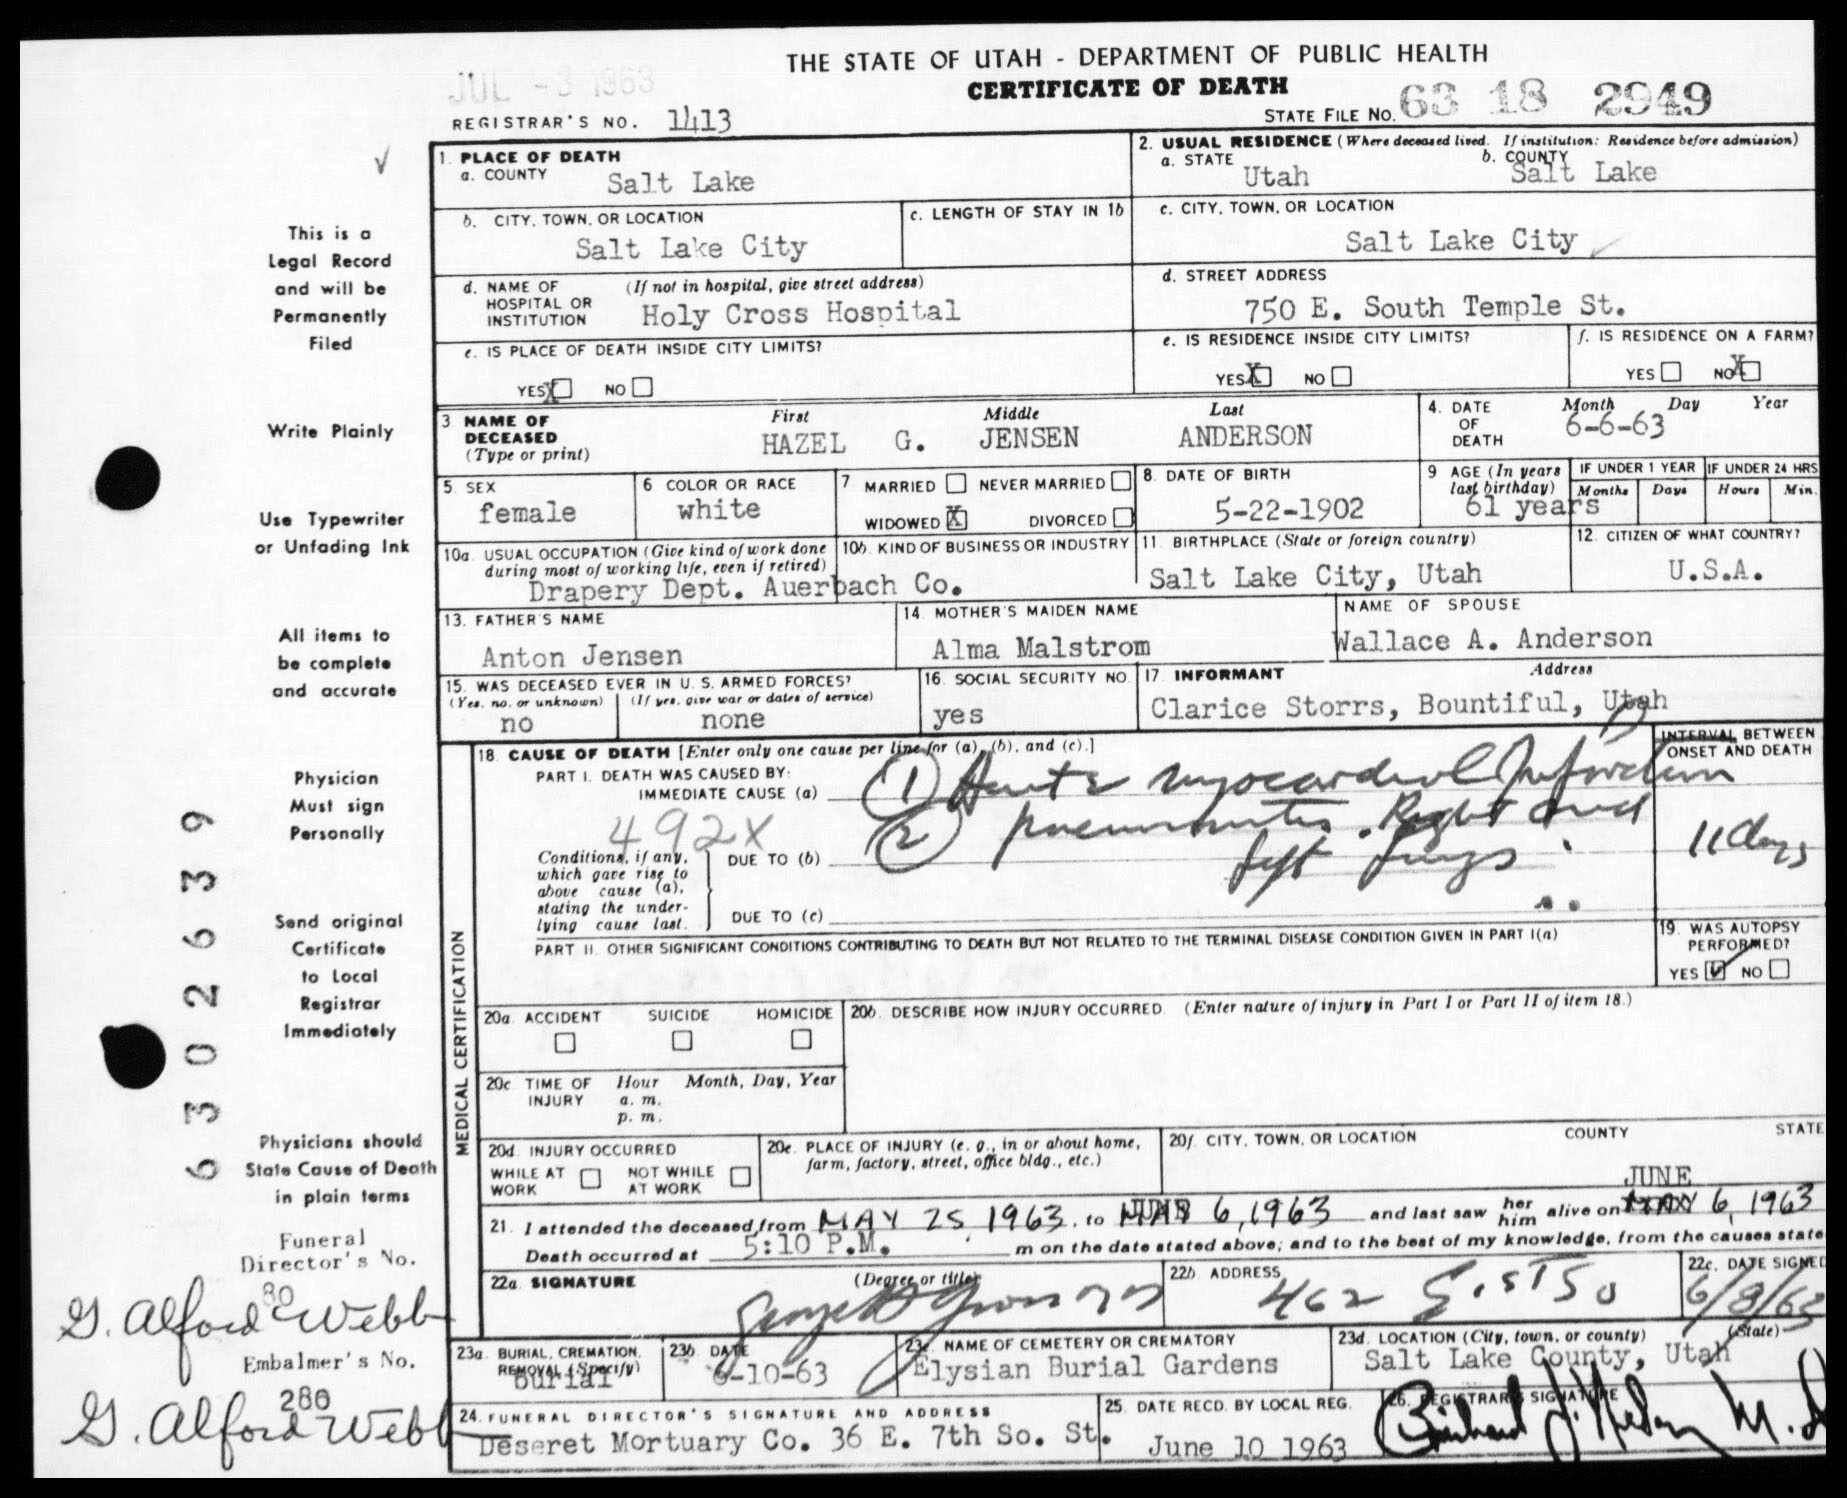 THE STATE OF UTAH - DEPARTMENT OF PUBLIC HEALTH
JUL -3 1963
CERTIFICATE OF DEATH
REGISTRAR'S NO. 1413
STATE FILE NO. 63 18 2949
1. PLACE OF DEATH
a. COUNTY Salt Lake
2. USUAL RESIDENCE (Where deceased lived. If institution: Residence before admission)
a. STATE Utah b. COUNTY Salt Lake
b. CITY, TOWN, OR LOCATION Salt Lake City
c. LENGTH OF STAY IN 1b
c. CITY, TOWN, OR LOCATION Salt Lake City
d. NAME OF HOSPITAL OR INSTITUTION (If not in hospital, give street address) Holy Cross Hospital
d. STREET ADDRESS 750 E. South Temple St.
e. IS PLACE OF DEATH INSIDE CITY LIMITS?
YES X NO
e. IS RESIDENCE INSIDE CITY LIMITS?
YES X NO
f. IS RESIDENCE ON A FARM?
YES NO X
3 NAME OF DECEASED (Type or print)
First Middle Last
HAZEL G. JENSEN ANDERSON
4. DATE OF DEATH Month Day Year
6-6-63
5. SEX female
6 COLOR OR RACE white
7 MARRIED NEVER MARRIED
WIDOWED X DIVORCED
8. DATE OF BIRTH 5-22-1902
9 AGE (In years last birthday) 61 years
IF UNDER 1 YEAR Months Days
IF UNDER 24 HRS Hours Min.
10a. USUAL OCCUPATION (Give kind of work done during most of working life, even if retired)
10b. KIND OF BUSINESS OR INDUSTRY
Drapery Dept. Auerbach Co.
11. BIRTHPLACE (State or foreign country) Salt Lake City, Utah
12. CITIZEN OF WHAT COUNTRY? U.S.A.
13. FATHER'S NAME Anton Jensen
14. MOTHER'S MAIDEN NAME Alma Malstrom
NAME OF SPOUSE Wallace A. Anderson
15. WAS DECEASED EVER IN U. S. ARMED FORCES?
(Yes, no, or unknown) no (If yes, give war or dates of service) none
16. SOCIAL SECURITY NO. yes
17. INFORMANT Address
Clarice Storrs, Bountiful, Utah
MEDICAL CERTIFICATION
18. CAUSE OF DEATH [Enter only one cause per line for (a), (b), and (c).]
PART I. DEATH WAS CAUSED BY:
IMMEDIATE CAUSE (a) (1) Acute myocardial Infarction
(2) pneumonitis. Right and
492X
Conditions, if any, which gave rise to above cause (a), stating the underlying cause last.
DUE TO (b) left lungs
DUE TO (c)
INTERVAL BETWEEN ONSET AND DEATH
11 days
PART II. OTHER SIGNIFICANT CONDITIONS CONTRIBUTING TO DEATH BUT NOT RELATED TO THE TERMINAL DISEASE CONDITION GIVEN IN PART I(a)
19. WAS AUTOPSY PERFORMED?
YES NO
20a. ACCIDENT SUICIDE HOMICIDE
20b. DESCRIBE HOW INJURY OCCURRED. (Enter nature of injury in Part I or Part II of item 18.)
20c. TIME OF INJURY Hour Month, Day, Year
a. m.
p. m.
20d. INJURY OCCURRED
WHILE AT WORK NOT WHILE AT WORK
20e. PLACE OF INJURY (e. g., in or about home, farm, factory, street, office bldg., etc.)
20f. CITY, TOWN, OR LOCATION COUNTY STATE
JUNE
21. I attended the deceased from MAY 25, 1963, to JUNE 6, 1963 and last saw her him alive on MAY 6, 1963
Death occurred at 5:10 P.M. m on the date stated above; and to the best of my knowledge, from the causes state
22a. SIGNATURE (Degree or title)
22b. ADDRESS 462 E. 1st So
22c. DATE SIGNED 6/8/63
23a. BURIAL, CREMATION, REMOVAL (Specify) Burial
23b. DATE 6-10-63
23c. NAME OF CEMETERY OR CREMATORY Elysian Burial Gardens
23d. LOCATION (City, town, or county) (State)
Salt Lake County, Utah
24. FUNERAL DIRECTOR'S SIGNATURE AND ADDRESS
Deseret Mortuary Co. 36 E. 7th So. St.
25. DATE RECD. BY LOCAL REG. June 10 1963
26. REGISTRAR'S SIGNATURE
M.D.
This is a
Legal Record
and will be
Permanently
Filed
Write Plainly
Use Typewriter
or Unfading Ink
All items to
be complete
and accurate
Physician
Must sign
Personally
Send original
Certificate
to Local
Registrar
Immediately
Physicians should
State Cause of Death
in plain terms
Funeral
Director's No.
80
G. Alford Webb
Embalmer's No.
286
G. Alford Webb
6302639